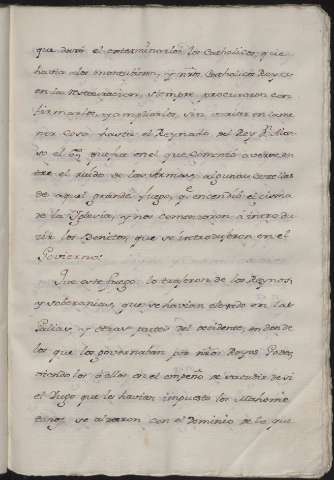 que duró el exterminarlos los Catholicos, que
hasta alli mantubieron, y nrõs Catholicos Reyes
en la restauracion, siempre procuraron con
firmarlos, y ampliarlos, sin omitir en la me
nor Cosa, hasta el Reynado, del Rey Dn. Alon
so el que fue en el que Comenzó a verse, en
tre el ruido de las Armas, algunas Centellas
de aquel grande fuego, qe. encendió el cisma
de la Yglesia, y nos comenzaron á introdu
zir los Benitos, que se introdujeron en el
Govierno.
Que este fuego lo trajeron de los Reynos,
y soberanias, que se havian elevado en las
Galias, y otras partes del occidente, en donde
los que los governaban por nrõs Reyes Godos,
viendo los á ellos en el empeño de sacudir de si
el Yugo que les havian impuesto los Mahome
tanos, se alzaron con el Dominio de lo que